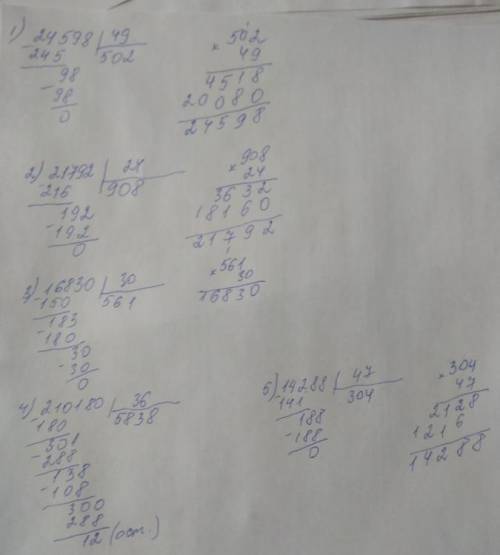 1) 24598 | 49
- 245 502
- 98
98
0
× 502
49
4518
20080
24598
2) 21792 | 24
- 216 908
- 192
192
0
× 908
24
3632
18160
21792
3) 16830 | 30
- 150 561
- 183
180
- 30
30
0
1
× 561
30
16830
4) 210180 | 36
- 180 5838
- 301
288
- 138
108
300
288
12 (ост.)
5) 14288 | 47
- 141 304
- 188
188
0
× 304
47
2128
1216
14288